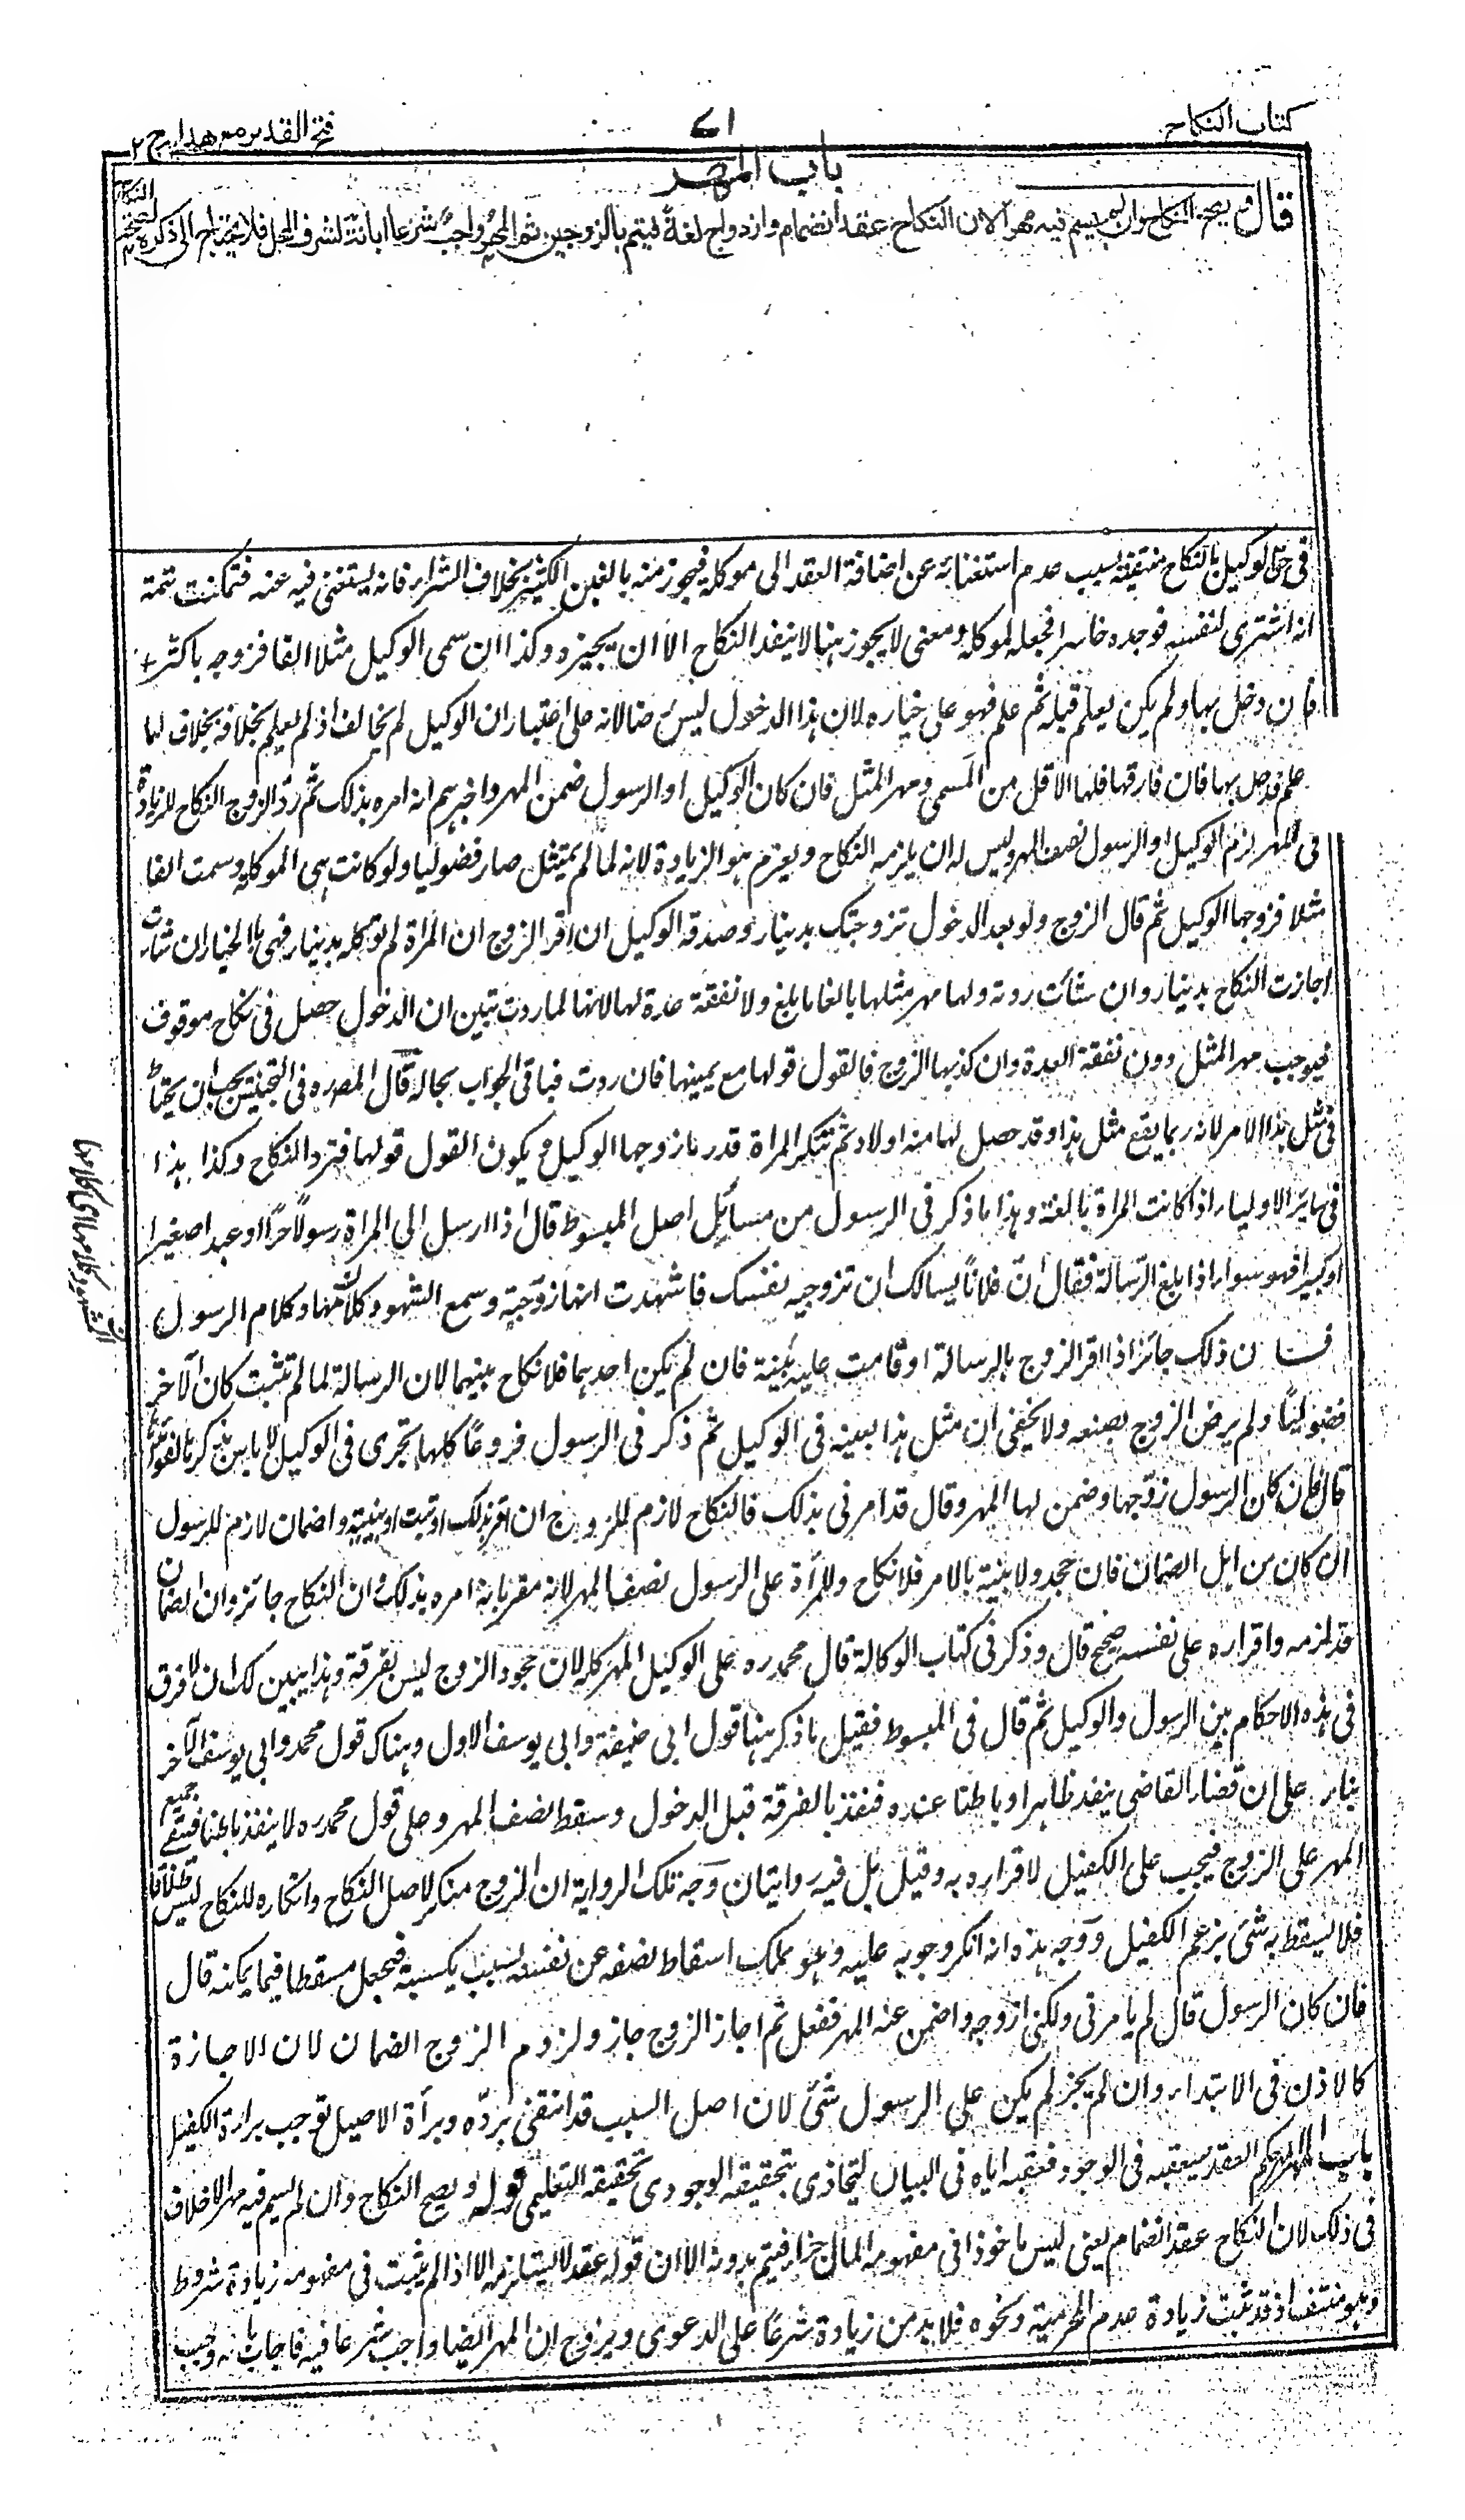 كتاب النكاح
٧١
فتح القدير مع هدايه ج ٢
باب المهر
قال ويصح النكاح وان لم يسم فيه مهرا لان النكاح عقد انضمام وازدواج لغة فيتم بالزوجين ثم المهر واجب شرعا ابانة لشرف المحل فلا يحتاج الى ذكره لصحة النكاح
فى حق الوكيل بالنكاح منتفية بسبب عدم استغنائه عن اضافة العقد الى موكله فيجوز منه بالغبن الكثير بخلاف الشراء فانه يستغنى فيه عنه فتمكنت تهمة
انه اشترى لنفسه فوجده خاسرا فجعله لموكله ومعنى لا يجوز هنا لا ينفذ النكاح الا ان يجيزه وكذا ان سمى الوكيل مثلا الفا فزوجه باكثر
فان دخل بها ولم يكن يعلم قبله ثم علم فهو على خياره لان هذا الدخول ليس رضا لانه على اعتبار ان الوكيل لم يخالف اذ لم يعلم بخلافه بخلاف لما
علم فدخل بها فان فارقها فلها الاقل من المسمى ومهر المثل فان كان الوكيل او الرسول ضمن المهر واخبرهم انه امره بذلك ثم رد الزوج النكاح لزيادة
فى المهر لزم الوكيل او الرسول نصف المهر وليس له ان يلزمه النكاح ويغرم هو الزيادة لانه لما لم يمتثل صار فضوليا ولو كانت هى الموكلة وسمت الفا
مثلا فزوجها الوكيل ثم قال الزوج ولو بعد الدخول تزوجتك بدينار وصدقه الوكيل ان اقر الزوج ان المراة لم توكله بدينار فهى بالخيار ان شاءت
اجازت النكاح بدينار وان شاءت ردته ولها مهر مثلها بالغا ما بلغ ولا نفقة عدة لها لانها لما ردت تبين ان الدخول حصل فى نكاح موقوف
فيوجب مهر المثل دون نفقة العدة وان كذبها الزوج فالقول قولها مع يمينها فان ردت فباقى الجواب بحاله قال المصره فى التجنيس يجب ان يحتاط
فى مثل هذا الامر لانه ربما يقع مثل هذا وقد حصل لها منه اولاد ثم تنكر المراة قدر ما زوجها الوكيل ويكون القول قولها فترد النكاح وكذا هذا
فى سائر الاولياء اذا كانت المراة بالغة وهذا ما ذكر فى الرسول من مسائل اصل المبسوط قال اذا ارسل الى المراة رسولا حرا او عبدا صغيرا
او كبيرا فهو سواء اذا بلغ الرسالة فقال ان فلانا يسالك ان تزوجيه نفسك فاشهدت انها زوجته وسمع الشهود كلامها وكلام الرسول
فان ذلك جائز اذا اقر الزوج بالرسالة او قامت عليه بينة فان لم يكن احدهما فلا نكاح بينهما لان الرسالة لما لم تثبت كان الآخر
فضوليا ولم يرض الزوج بصنعه ولا يخفى ان مثل هذا بعينه فى الوكيل ثم ذكر فى الرسول فروعا كلها تجرى فى الوكيل لا باس بذكرها
قال فان كان الرسول زوجها وضمن لها المهر وقال قد امرنى بذلك فالنكاح لازم للزوج ان اقر بذلك او ثبت ببينة والضمان لازم للرسول
ان كان من اهل الضمان فان جحد ولا بينة بالامر فلا نكاح وللمرأة على الرسول نصف المهر لانه مقر بانه امره بذلك وان النكاح جائز وان الضمان
قد لزمه واقراره على نفسه صحيح قال وذكر فى كتاب الوكالة قال محمد ره على الوكيل المهر كله لان جحود الزوج ليس بفرقة وهذا يبين لك ان لا فرق
فى هذه الاحكام بين الرسول والوكيل ثم قال فى المبسوط فقيل ما ذكر هنا قول ابى حنيفة وابى يوسف الاول وهناك قول محمد وابى يوسف الآخر
بناء على ان قضاء القاضى ينفذ ظاهرا وباطنا عنده فنفذ بالفرقة قبل الدخول وسقط نصف المهر وعلى قول محمد ره لا ينفذ باطنا فيبقى جميع
المهر على الزوج فيجب على الكفيل لاقراره به وقيل بل فيه روايتان وجه تلك الرواية ان الزوج منكر لاصل النكاح وانكاره للنكاح ليس طلاقا
فلا يسقط به شئ بزعم الكفيل ووجه هذه انه انكر وجوبه عليه وهو يملك اسقاط نصفه عن نفسه بسبب يكسبه فيجعل مسقطا فيما يمكنه قال
فان كان الرسول قال لم يامرنى ولكنى ازوجه واضمن عنه المهر ففعل ثم اجاز الزوج جاز ولزم الزوج الضمان لان الاجازة
كالاذن فى الابتداء وان لم يجز لم يكن على الرسول شئ لان اصل السبب قد انتفى برده وبرأة الاصيل توجب براءة الكفيل
باب المهر حكم العقد فيعقبه فى الوجود فعقبه اياه فى البيان ليحاذى بتحقيقه الوجودى تحقيقه التعليمى قوله ويصح النكاح وان لم يسم فيه مهرا لا خلاف
فى ذلك لان النكاح عقد انضمام يعنى ليس ماخوذا فى مفهومه المال جزأ فيتم بدونه الا ان قوله عقد لا يستلزمه الا اذا لم يثبت فى مفهومه زيادة شروط
وهو منتف اذ قد ثبت زيادة عدم المحرمية ونحوه فلا بد من زيادة شرعا على الدعوى ويزوج ان المهر ايضا واجب شرعا فيه فاجاب بانه وجب